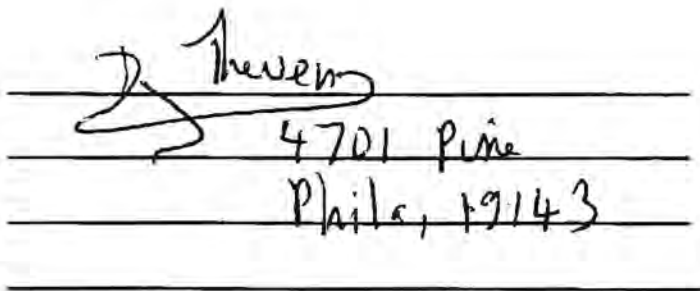 D Theveny
4701 Pine
Phila, 19143